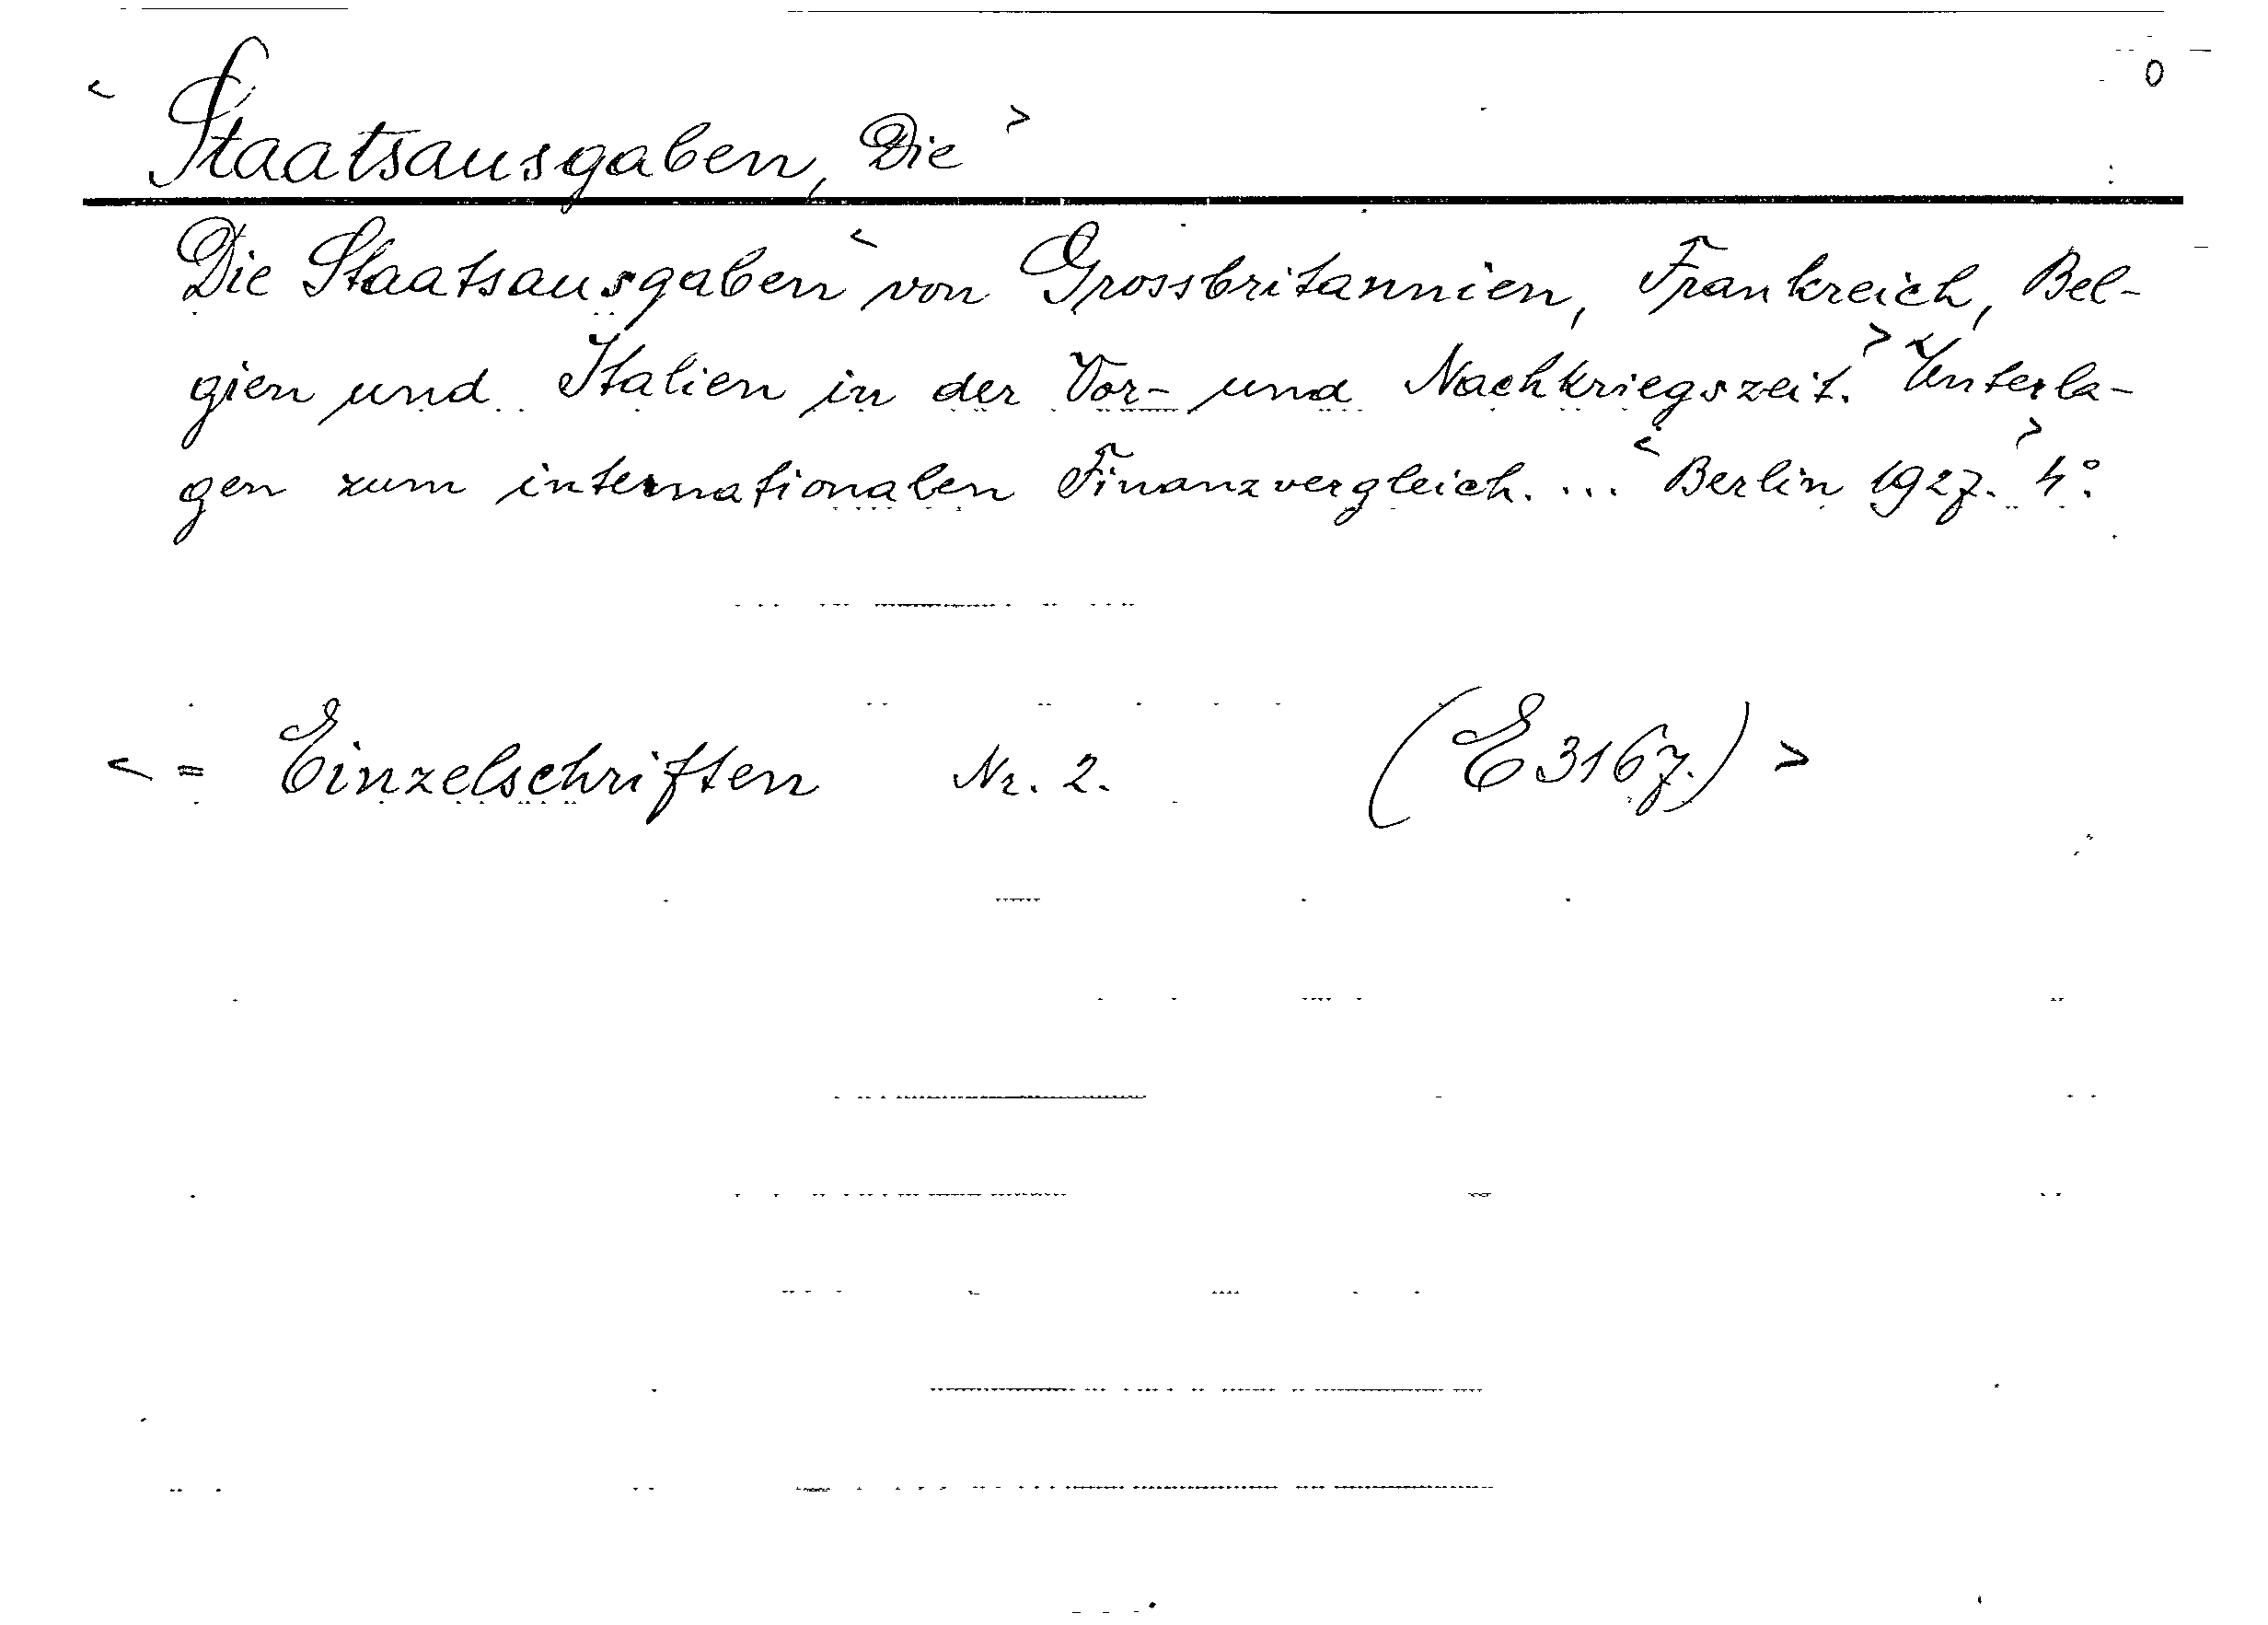 < Staatsausgaben, Die > 0
Die Staatsausgaben < von Grossbritannien, Frankreich, Bel-
gien und Italien in der Vor- und Nachkriegszeit. > < Unterla-
gen zum internationalen Finanzvergleich. ... < Berlin 1927. > 4°.
< = Einzelschriften Nr. 2. (E 3167.) >